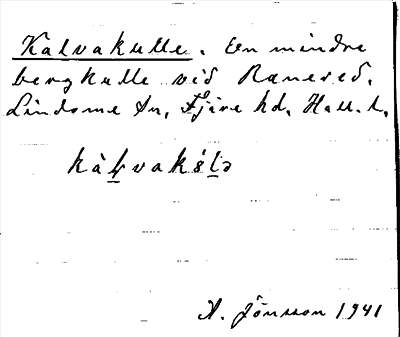 Kalvakulle. En mindre
bergkulle vid Ranered.
Lindome sn, Fjäre hd, Hall. l.
kàl̠vakə́l̠ə
A. Jönsson 1941